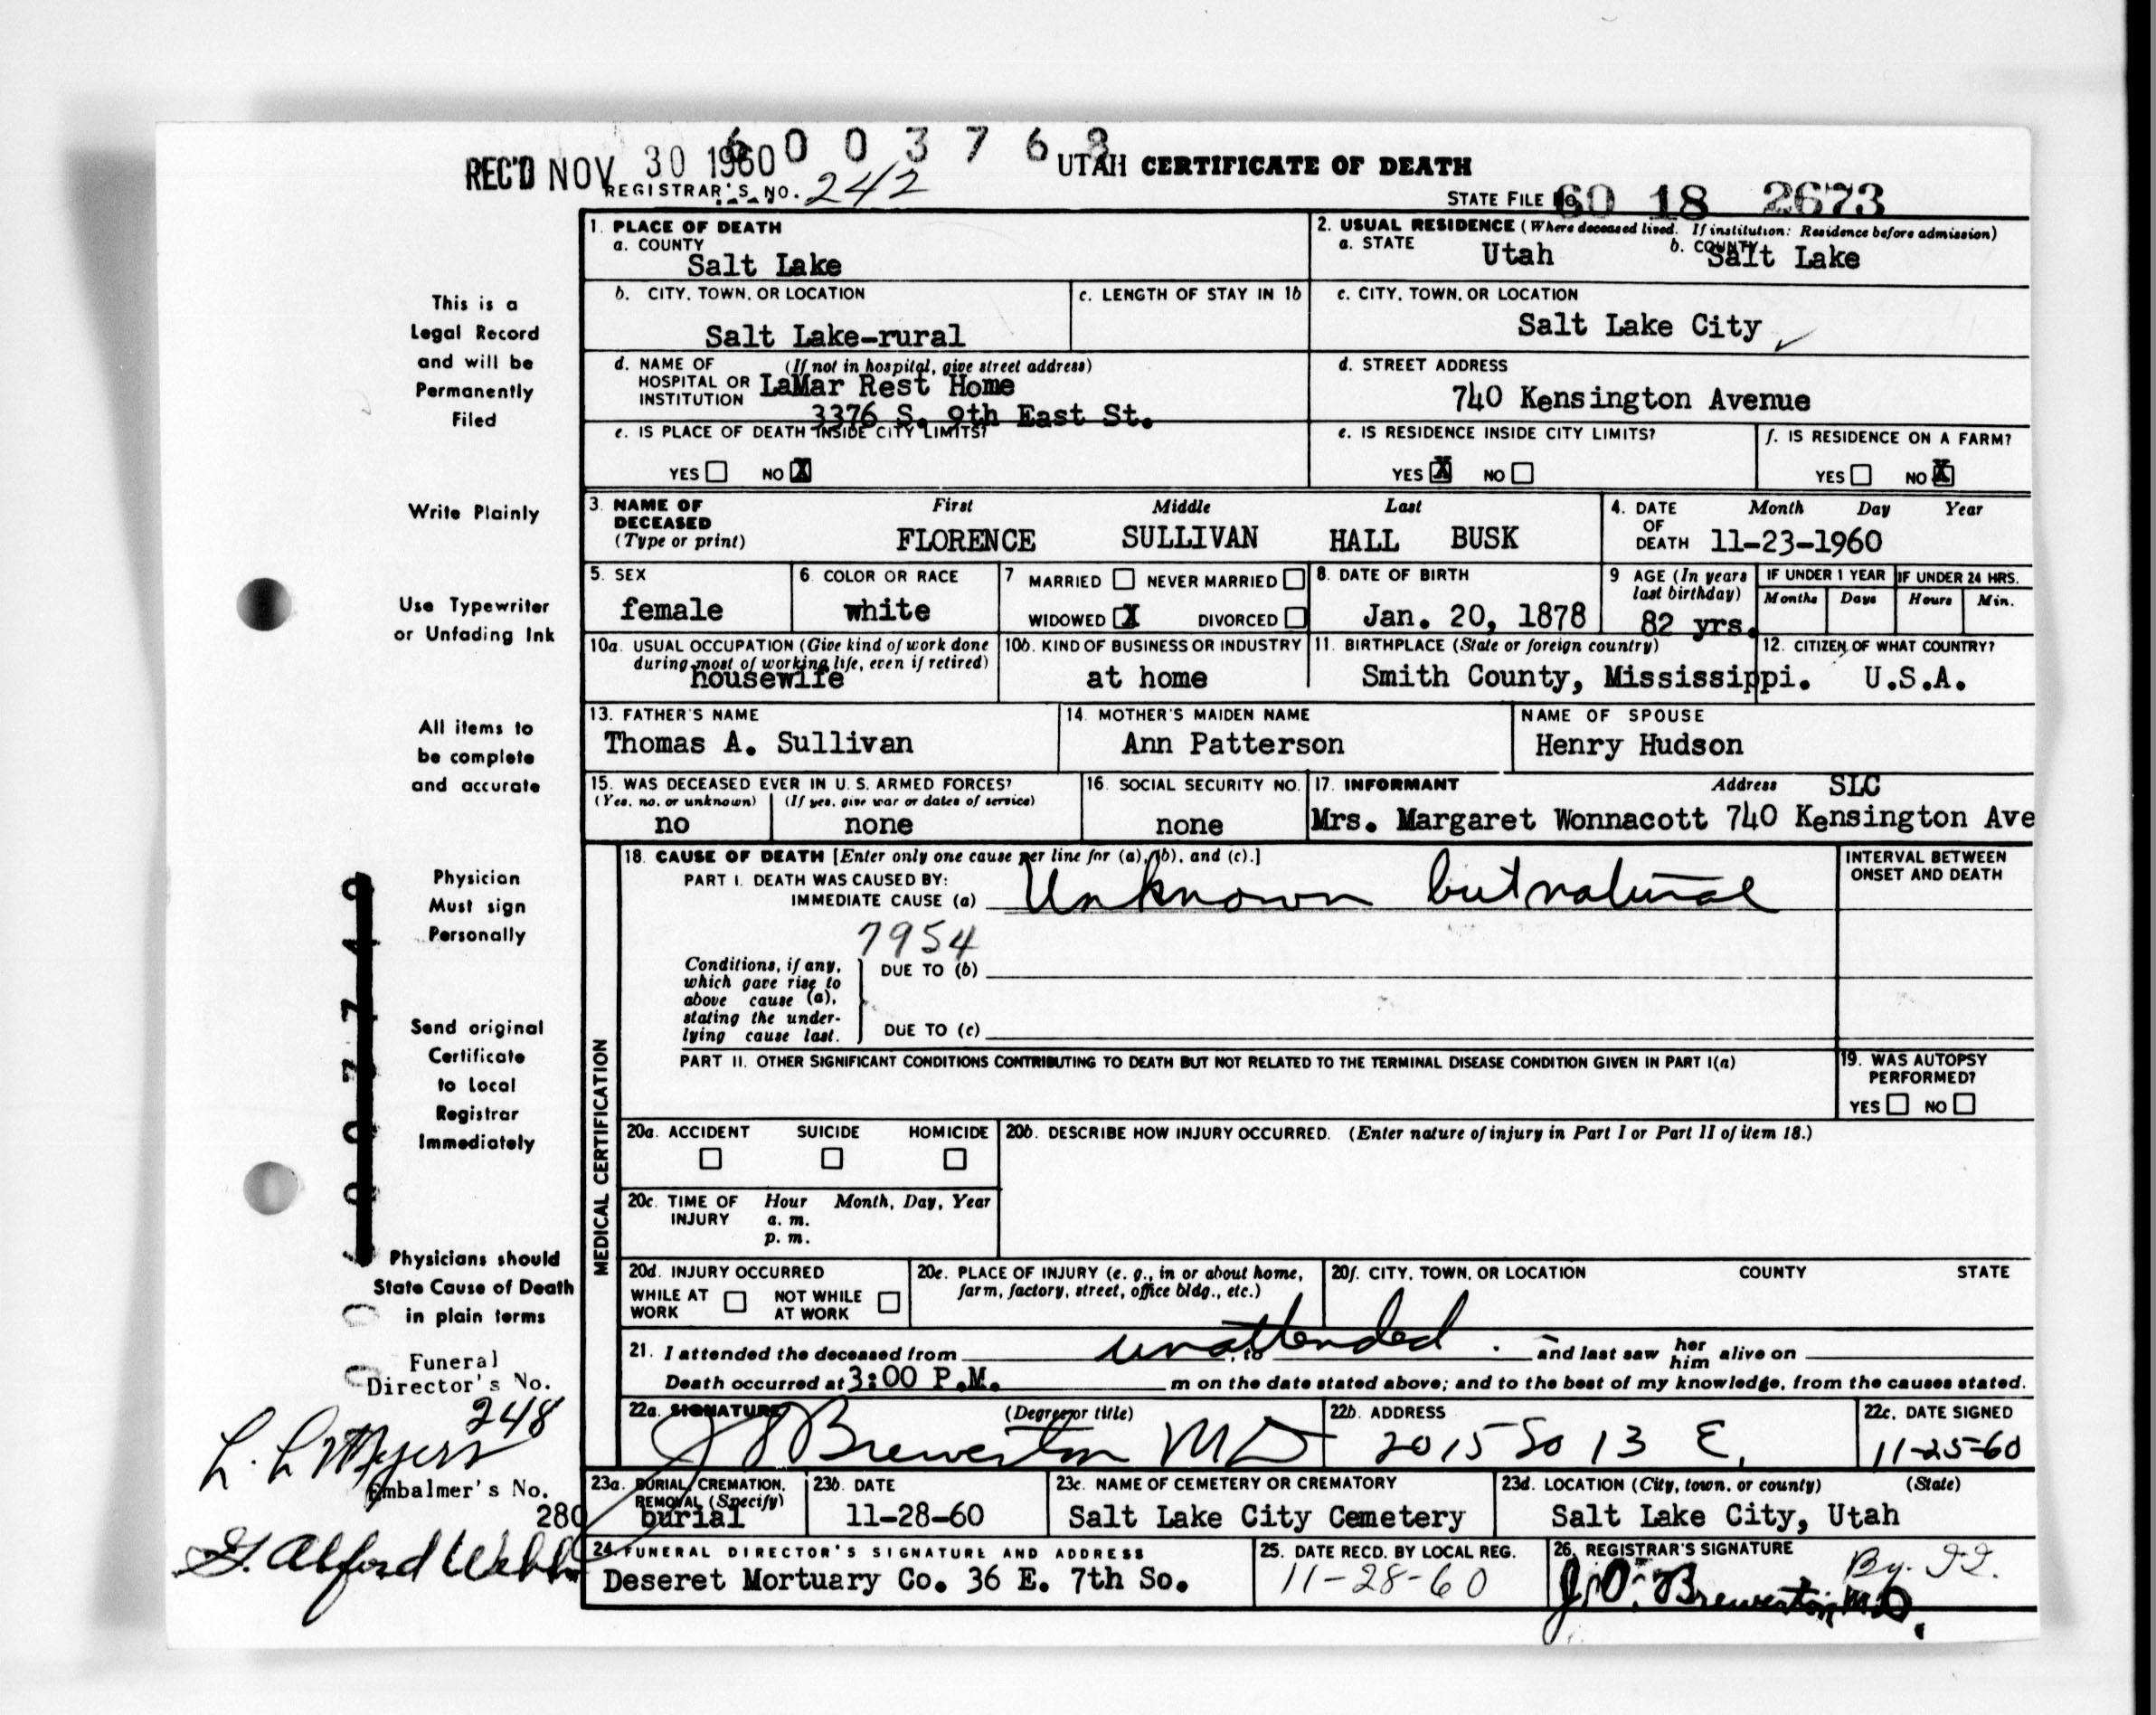 6 0 0 3 7 6 8
REC'D NOV 30 1960
UTAH CERTIFICATE OF DEATH
REGISTRAR'S NO. 242
STATE FILE No. 60 18 2673
1. PLACE OF DEATH
a. COUNTY
Salt Lake
2. USUAL RESIDENCE (Where deceased lived. If institution: Residence before admission)
a. STATE Utah b. COUNTY Salt Lake
b. CITY, TOWN, OR LOCATION
Salt Lake-rural
c. LENGTH OF STAY IN 1b
c. CITY, TOWN, OR LOCATION
Salt Lake City
d. NAME OF HOSPITAL OR INSTITUTION (If not in hospital, give street address)
LaMar Rest Home
3376 S. 9th East St.
d. STREET ADDRESS
740 Kensington Avenue
e. IS PLACE OF DEATH INSIDE CITY LIMITS?
YES NO X
e. IS RESIDENCE INSIDE CITY LIMITS?
YES X NO
f. IS RESIDENCE ON A FARM?
YES NO X
3. NAME OF DECEASED (Type or print)
First Middle Last
FLORENCE SULLIVAN HALL BUSK
4. DATE OF DEATH Month Day Year
11-23-1960
5. SEX
female
6. COLOR OR RACE
white
7 MARRIED NEVER MARRIED
WIDOWED X DIVORCED
8. DATE OF BIRTH
Jan. 20, 1878
9 AGE (In years last birthday)
82 yrs.
IF UNDER 1 YEAR IF UNDER 24 HRS.
Months Days Hours Min.
10a. USUAL OCCUPATION (Give kind of work done during most of working life, even if retired)
housewife
10b. KIND OF BUSINESS OR INDUSTRY
at home
11. BIRTHPLACE (State or foreign country)
Smith County, Mississippi.
12. CITIZEN OF WHAT COUNTRY?
U.S.A.
13. FATHER'S NAME
Thomas A. Sullivan
14. MOTHER'S MAIDEN NAME
Ann Patterson
NAME OF SPOUSE
Henry Hudson
15. WAS DECEASED EVER IN U. S. ARMED FORCES?
(Yes, no, or unknown) (If yes, give war or dates of service)
no none
16. SOCIAL SECURITY NO.
none
17. INFORMANT Address SLC
Mrs. Margaret Wonnacott 740 Kensington Ave
18. CAUSE OF DEATH [Enter only one cause per line for (a), (b), and (c).]
PART I. DEATH WAS CAUSED BY:
IMMEDIATE CAUSE (a) Unknown but natural
INTERVAL BETWEEN ONSET AND DEATH
7954
Conditions, if any, which gave rise to above cause (a), stating the underlying cause last.
DUE TO (b)
DUE TO (c)
PART II. OTHER SIGNIFICANT CONDITIONS CONTRIBUTING TO DEATH BUT NOT RELATED TO THE TERMINAL DISEASE CONDITION GIVEN IN PART I(a)
19. WAS AUTOPSY PERFORMED?
YES NO
MEDICAL CERTIFICATION
20a. ACCIDENT SUICIDE HOMICIDE
20b. DESCRIBE HOW INJURY OCCURRED. (Enter nature of injury in Part I or Part II of item 18.)
20c. TIME OF INJURY Hour Month, Day, Year
a. m.
p. m.
20d. INJURY OCCURRED
WHILE AT WORK NOT WHILE AT WORK
20e. PLACE OF INJURY (e. g., in or about home, farm, factory, street, office bldg., etc.)
20f. CITY, TOWN, OR LOCATION COUNTY STATE
21. I attended the deceased from unattended, to and last saw her him alive on
Death occurred at 3:00 P.M. m on the date stated above; and to the best of my knowledge, from the causes stated.
22a. SIGNATURE (Degree or title)
J O Brewerton MD
22b. ADDRESS
2015 So 13 E.
22c. DATE SIGNED
11-25-60
23a. BURIAL, CREMATION, REMOVAL (Specify)
burial
23b. DATE
11-28-60
23c. NAME OF CEMETERY OR CREMATORY
Salt Lake City Cemetery
23d. LOCATION (City, town, or county) (State)
Salt Lake City, Utah
24. FUNERAL DIRECTOR'S SIGNATURE AND ADDRESS
Deseret Mortuary Co. 36 E. 7th So.
25. DATE RECD. BY LOCAL REG.
11-28-60
26. REGISTRAR'S SIGNATURE
J. O. Brewerton, M.D.
This is a
Legal Record
and will be
Permanently
Filed
Write Plainly
Use Typewriter
or Unfading Ink
All items to
be complete
and accurate
Physician
Must sign
Personally
Send original
Certificate
to Local
Registrar
Immediately
Physicians should
State Cause of Death
in plain terms
Funeral
Director's No.
248
L. L. Myers
Embalmer's No.
280
G. Alford Webb